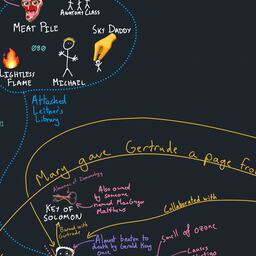 ANATOMY CLASS
MEAT PILE
SKY DADDY
080
LIGHTLESS
FLAME
MICHAEL
Attached
Leitner's
Library
Mary gave Gertrude a page from
Also owned
by someone
named MacGregor
Matthews
KEY OF
SOLOMON
Collaborated with
Burned with
Gertrude
Almost beaten to
death by Gerald Keay
once
smell of ozone
Causes